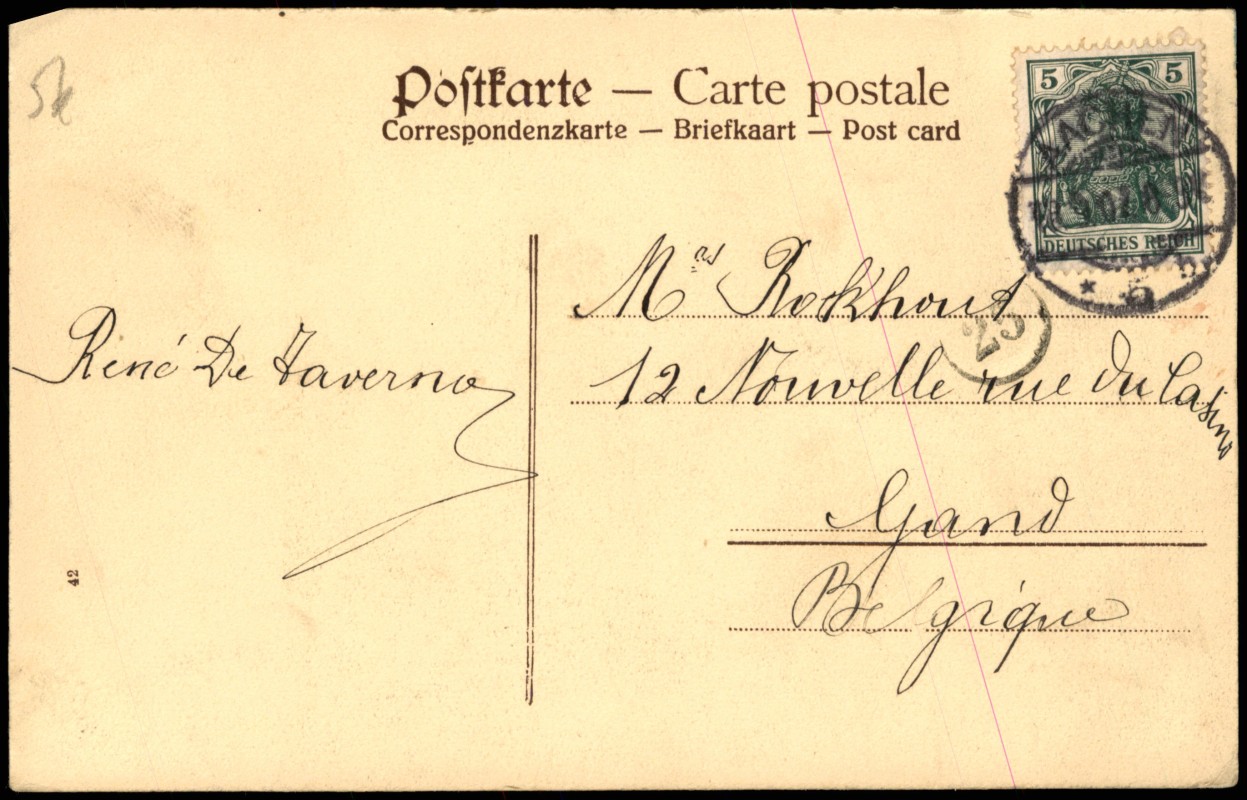 Postkarte — Carte postale
Correspondenzkarte — Briefkaart — Post card
5 5
AACHEN
DEUTSCHES REICH
* 5 b
25
Rockhout
12 Nouvelle rue du Casino
Gand
Belgique
René De Taverne
42